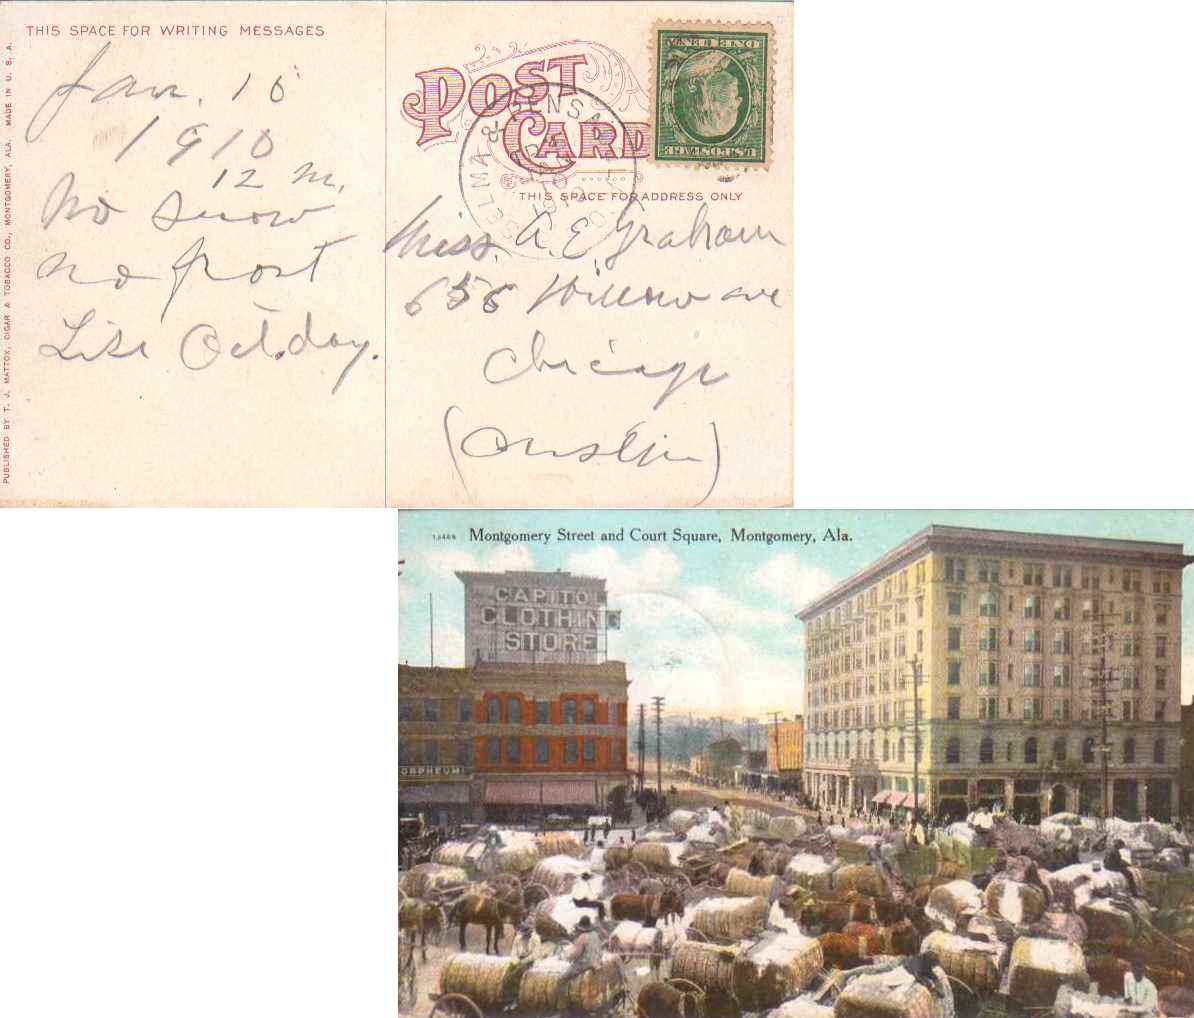 THIS SPACE FOR WRITING MESSAGES
Jan. 15
1910
12 M.
No snow
no frost
Like Oct. day.
PUBLISHED BY T. J. MATTOX, CIGAR & TOBACCO CO., MONTGOMERY, ALA. MADE IN U. S. A.
POST
CARD
SELMA & PENSA
THIS SPACE FOR ADDRESS ONLY
Miss. A. E. Graham
656 Willow ave
Chicago
(Austin)
Montgomery Street and Court Square, Montgomery, Ala.
CAPITOL
CLOTHING
STORE
ORPHEUM